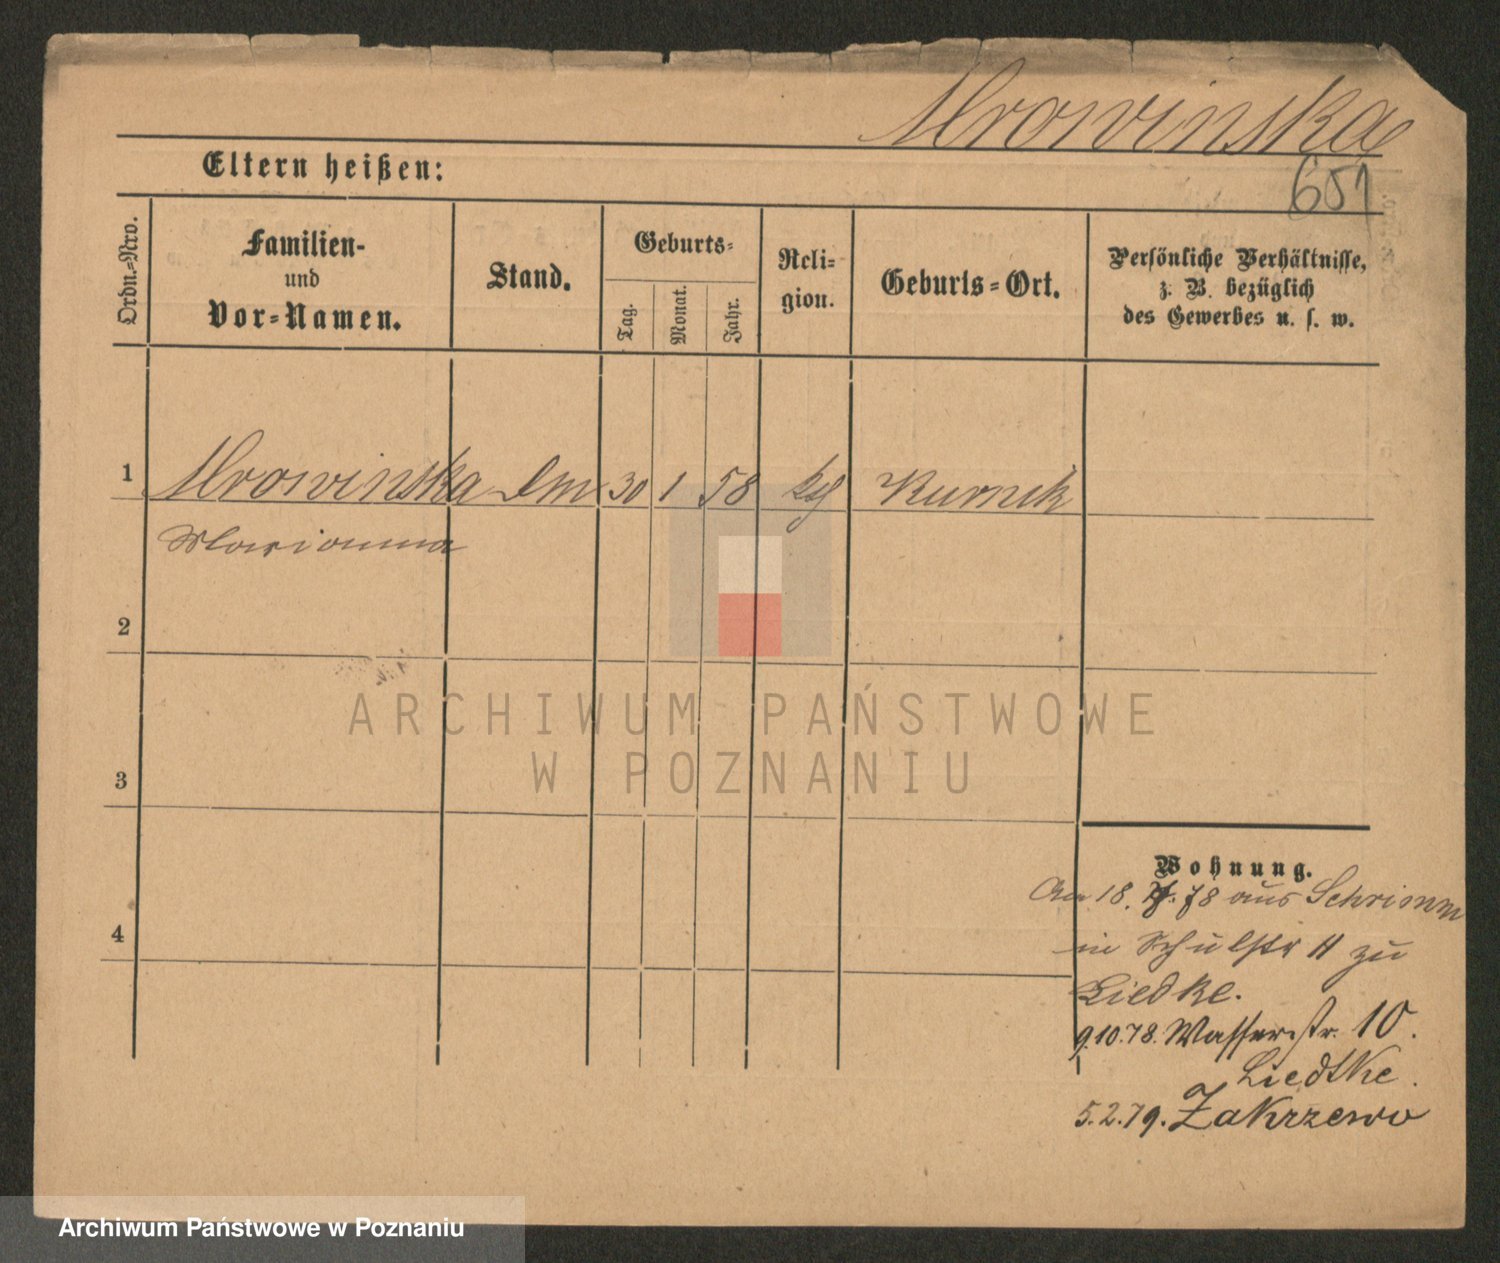 Mrowinska
Eltern heißen:
651
Ordn.-Nro.
Familien-
und
Vor-Namen.
Stand.
Geburts-
Tag.
Monat.
Jahr.
Reli-
gion.
Geburts-Ort.
Persönliche Verhältnisse,
z. B. bezüglich
des Gewerbes u. s. w.
1 Mrowinska Dm 30 1 58 kth Kurnik
Marianna
2
3
4
Wohnung.
Am 18. 78 aus Schrimm
in Schulstr 11 zu
Liedke.
9.10.78. Wasserstr. 10.
Liedtke.
5.2.79. Zakrzewo
ARCHIWUM PAŃSTWOWE
W POZNANIU
Archiwum Państwowe w Poznaniu